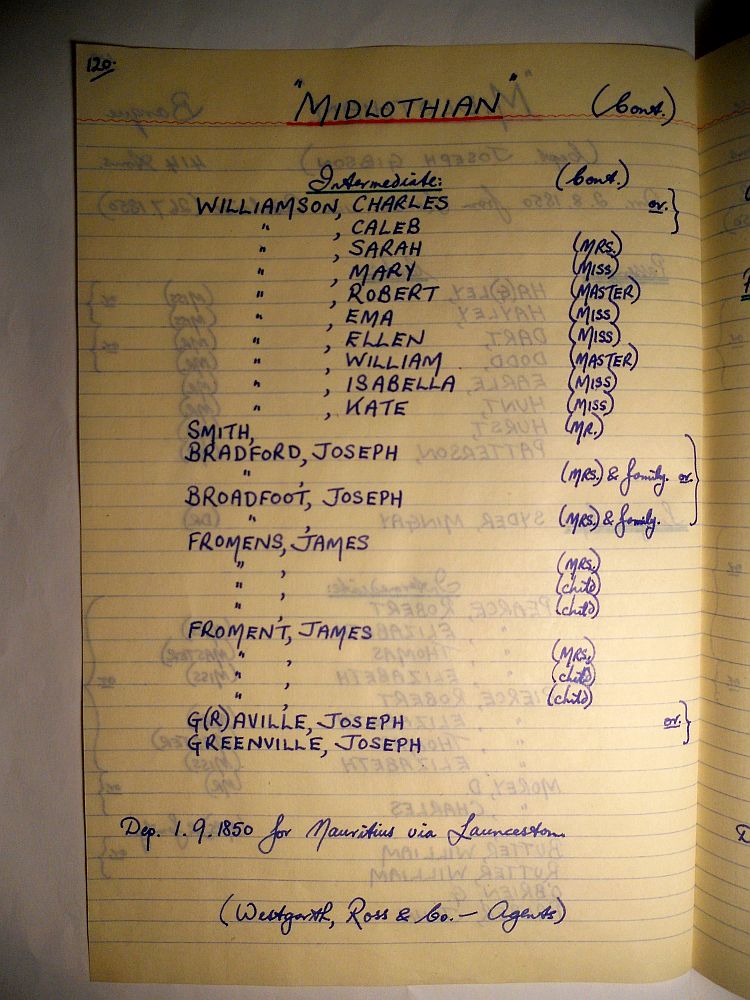 120.
"MIDLOTHIAN" (Cont.)
Intermediate: (Cont.)
WILLIAMSON, CHARLES or. }
" , CALEB
" , SARAH (MRS.)
" , MARY (MISS)
" , ROBERT (MASTER)
" , EMA (MISS)
" , ELLEN (MISS)
" , WILLIAM (MASTER)
" , ISABELLA (MISS)
" , KATE (MISS)
SMITH, (MR.)
BRADFORD, JOSEPH
" , (MRS.) & family. or. }
BROADFOOT, JOSEPH
" , (MRS.) & family.
FROMENS, JAMES
" , (MRS.)
" , (child)
" , (child)
FROMENT, JAMES
" , (MRS.)
" , (child)
" , (child)
G(R)AVILLE, JOSEPH or. }
GREENVILLE, JOSEPH
Dep. 1.9.1850 for Mauritius via Launceston.
(Westgarth, Ross & Co. – Agents)